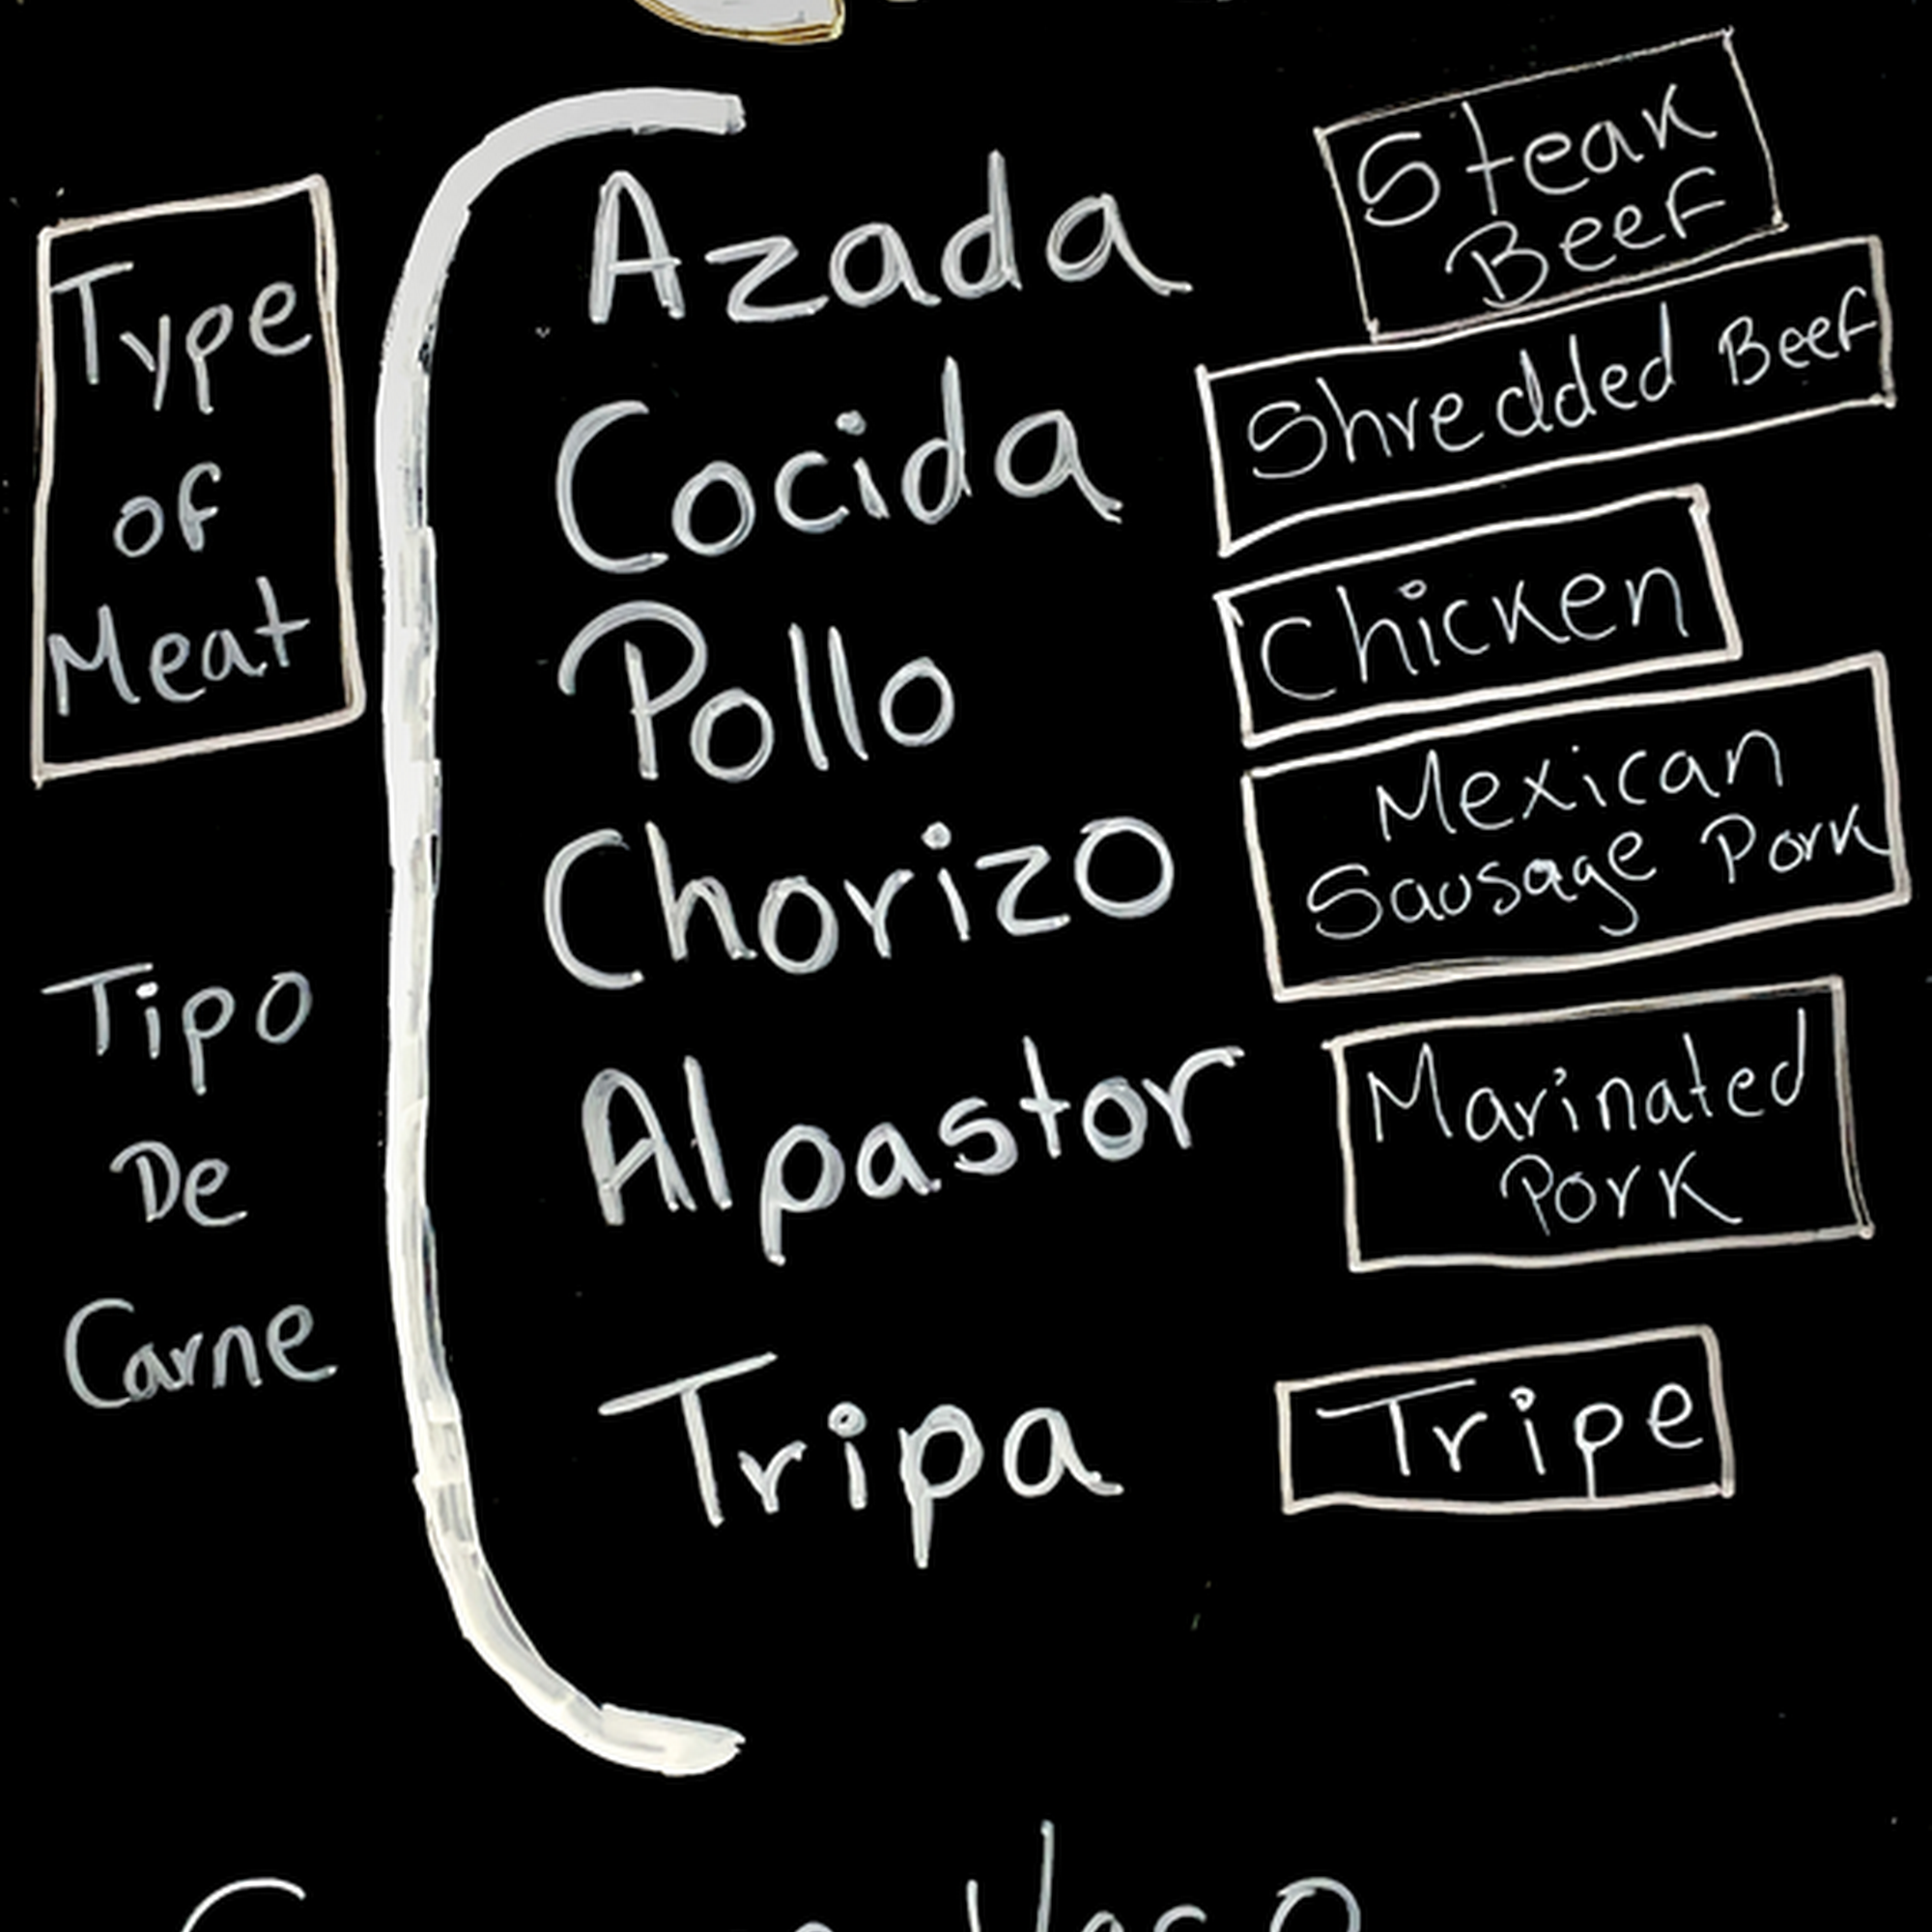 Type
of
Meat
Tipo
De
Carne
Azada
Steak
Beef
Cocida
Shredded Beef
Pollo
Chicken
Chorizo
Mexican
Sausage Pork
Alpastor
Marinated
Pork
Tripa
Tripe